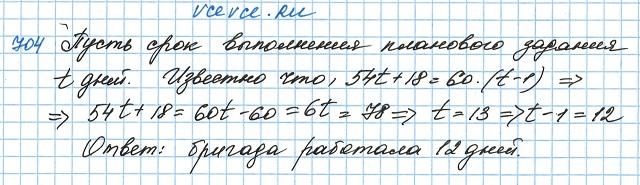 vcevce.ru
704 Пусть срок выполнения планового задания
t дней. Известно что, 54t+18=60·(t-1) ⇒
⇒ 54t+18=60t-60=6t=78⇒ t=13⇒t-1=12
Ответ: бригада работала 12 дней.